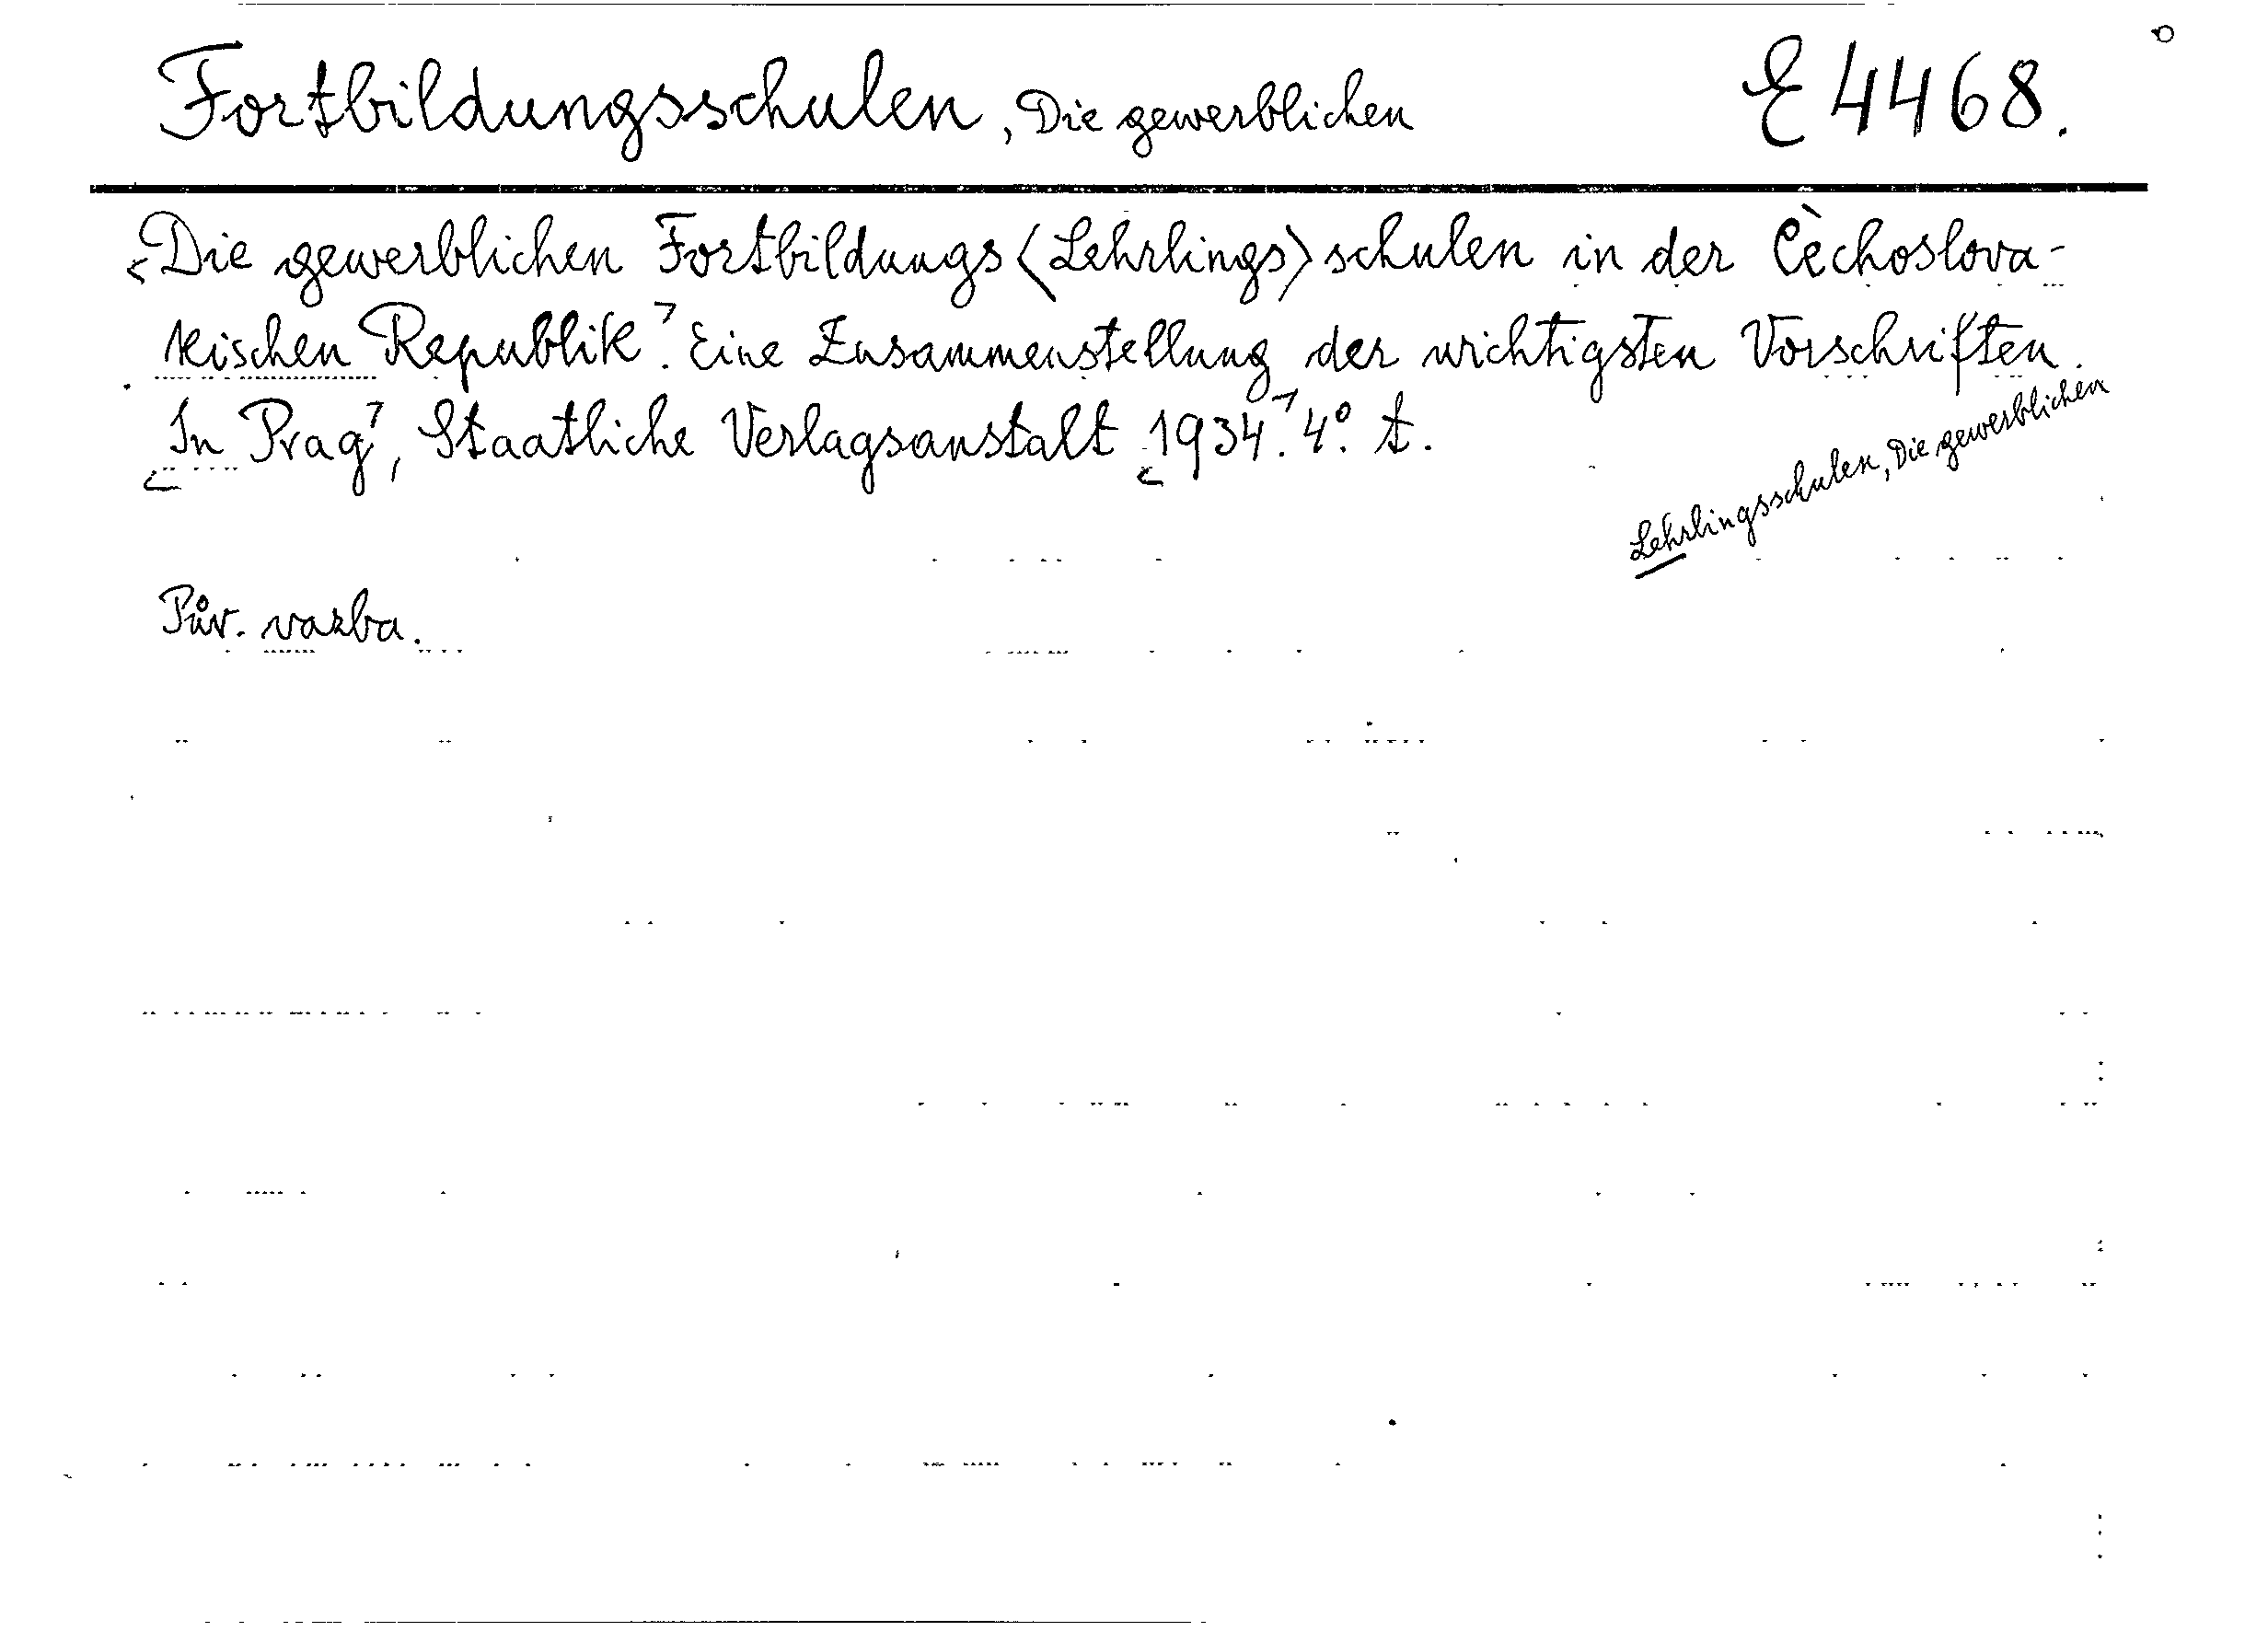 Fortbildungsschulen, Die gewerblichen E 4468.
Die gewerblichen Fortbildungs(Lehrlings)schulen in der Čechoslova-
kischen Republik. Eine Zusammenstellung der wichtigsten Vorschriften.
In Prag, Staatliche Verlagsanstalt 1934. 4°. t.
Lehrlingsschulen, Die gewerblichen
Pův. vazba.